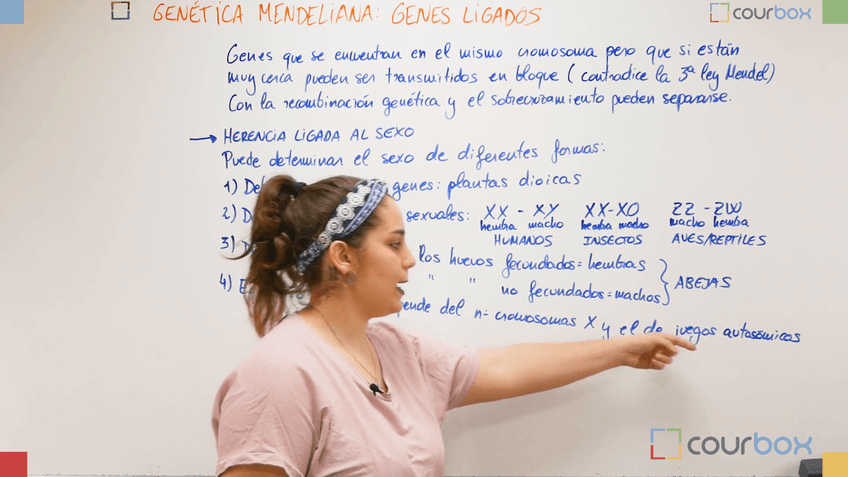 GENÉTICA MENDELIANA: GENES LIGADOS
courbox
Genes que se encuentran en el mismo cromosoma pero que si están
muy cerca pueden ser transmitidos en bloque (contradice la 3ª ley Mendel)
Con la recombinación genética y el sobrecruzamiento pueden separarse.
→ HERENCIA LIGADA AL SEXO
Puede determinar el sexo de diferentes formas:
1) genes: plantas dioicas
2) sexuales: XX - XY XX-XO ZZ - ZW
hembra macho hembra macho macho hembra
HUMANOS INSECTOS AVES/REPTILES
3) los huevos fecundados = hembras
" " no fecundados = machos } ABEJAS
4) del nº cromosomas X y el de juegos autosómicos
courbox